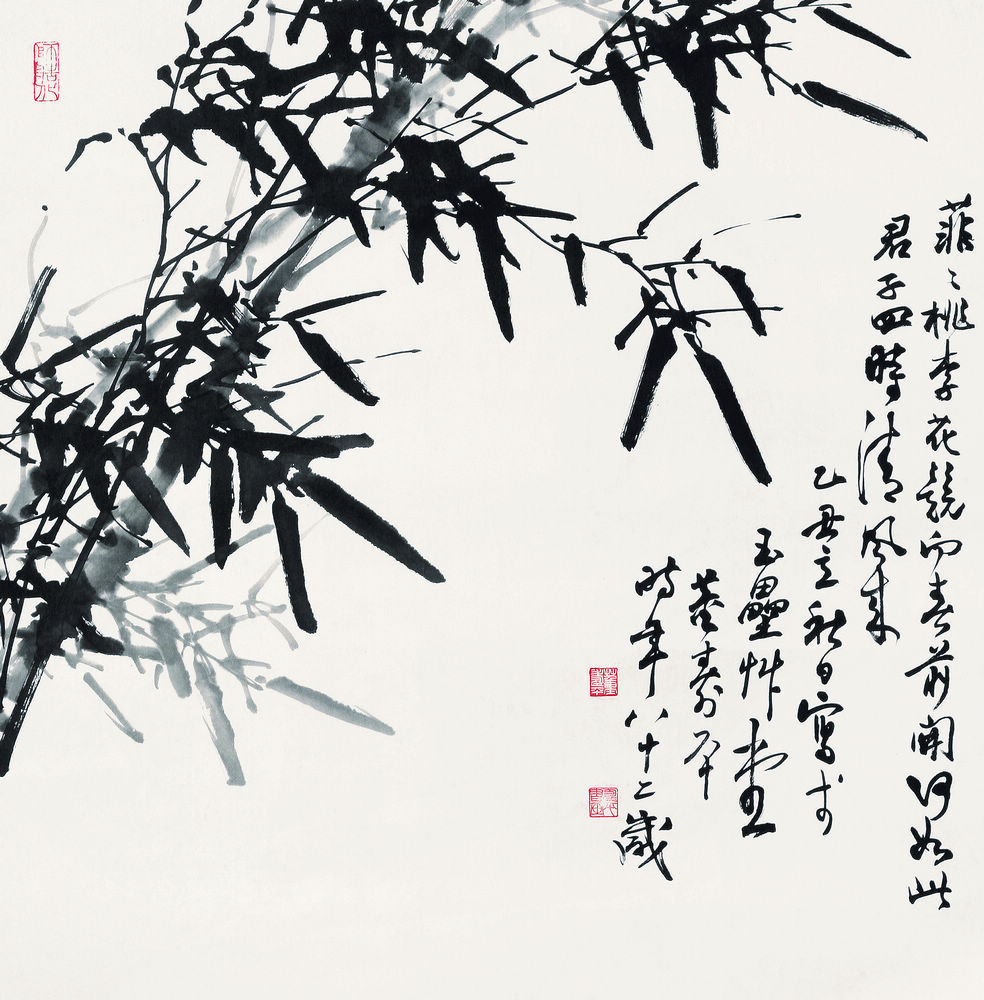 菲〻桃李花競向春前開何如此
君子四時清風來
乙丑立秋日寫於
玉壘艸堂
董壽平
時年八十二歲